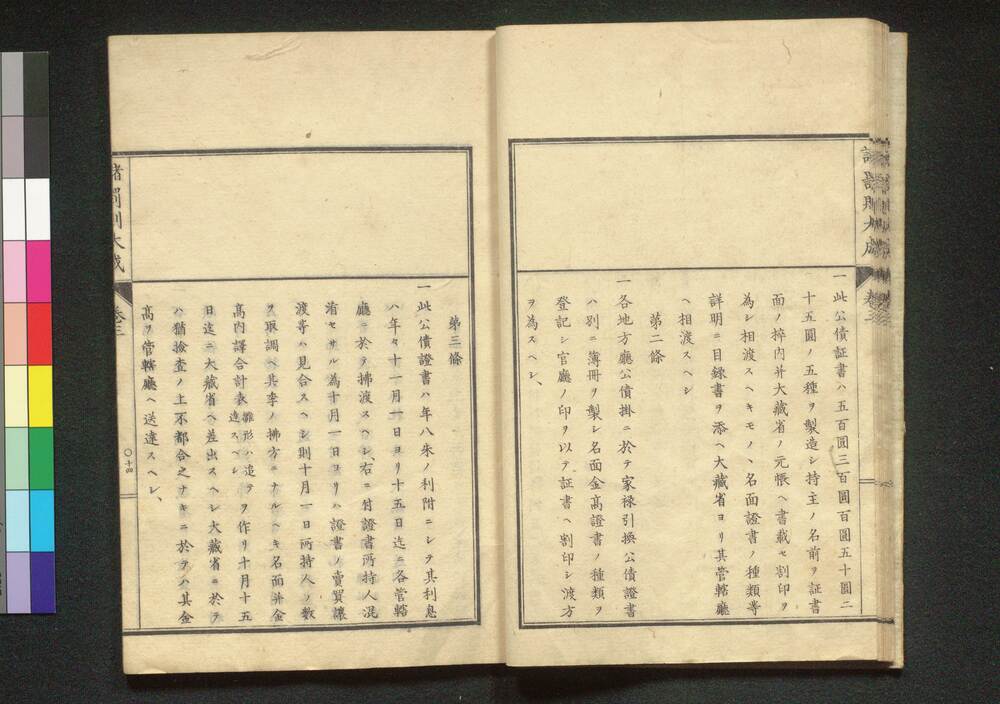 一此公債証書ハ五百圓三百圓百圓五十圓二
十五圓ノ五種ヲ製造シ持主ノ名前ヲ証書
面ノ枠内并大藏省ノ元帳ヘ書載セ割印ヲ
為シ相渡スヘキモノ、名面證書ノ種類等
詳明ニ目録書ヲ添ヘ大藏省ヨリ其管轄廳
ヘ相渡スヘシ
第二條
一各地方廳公債掛ニ於テ家祿引換公債證書
ハ別ニ簿冊ヲ製シ名面金高證書ノ種類ヲ
登記シ官廳ノ印ヲ以テ証書ヘ割印シ渡方
ヲ為スヘシ、
第三條
一此公債證書ハ年八朱ノ利附ニシテ其利息
ハ年々十一月一日ヨリ十五日迄ニ各管轄
廳ニ於テ拂渡スヘシ、右ニ付證書所持人混
淆セサル為十月一日ヨリハ證書ノ賣買讓
渡等ハ見合スヘシ則十月一日所持人ノ數
ヲ取調ヘ其季ノ拂方ニナルヘキ名面并金
高内譯合計表雛形ハ追テ達スヘシヲ作リ十月十五
日迄ニ大藏省ヘ差出スヘシ大藏省ニ於テ
ハ猶檢査ノ上不都合之ナキニ於テハ其金
高ヲ管轄廳ヘ送達スヘシ、
卷三
〇十四